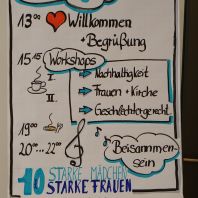 13⁰⁰ ❤ Willkommen
+ Begrüßung
15¹⁵ Workshops
I. → Nachhaltigkeit
→ Frauen + Kirche
II. → Geschlechtergerecht.
19⁰⁰
20⁰⁰...22⁰⁰ Beisammen-
sein
10 STARKE MÄDCHEN
STARKE FRAUEN